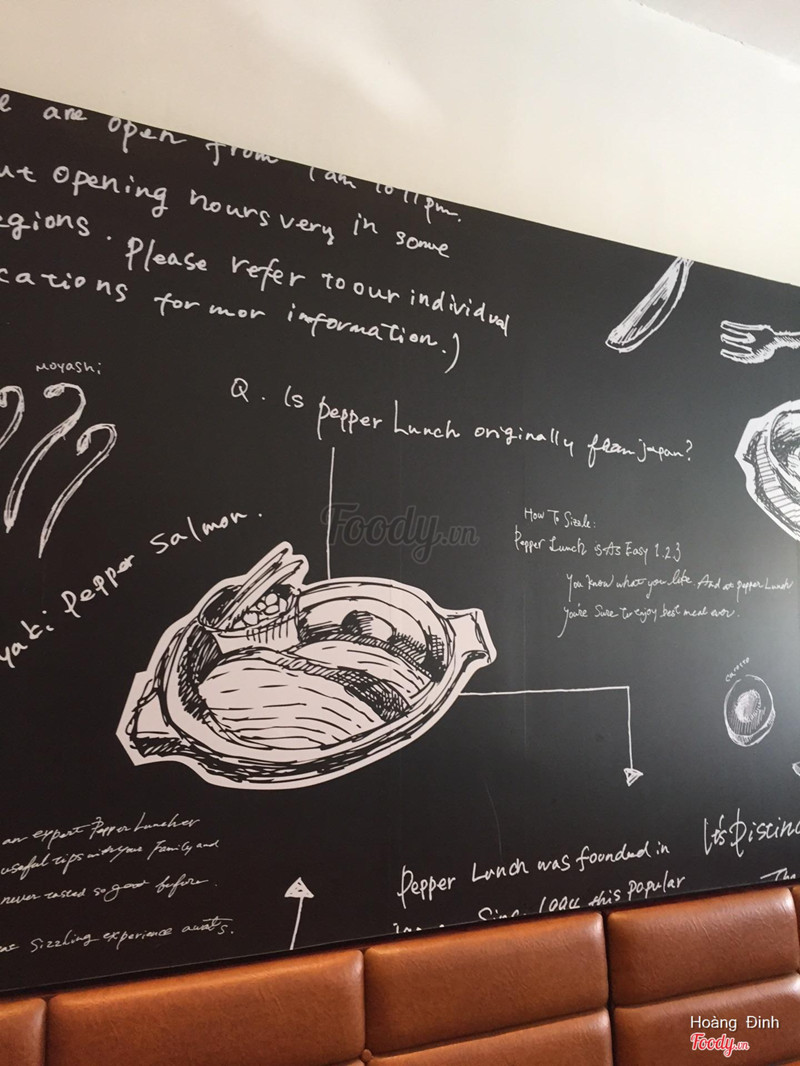 are open from 1am to 11pm.
opening hours very in some
Please refer to our individual
for mor information.)
Moyashi
Q. Is pepper Lunch originally from japan?
How To Sizzle:
Pepper Lunch is As Easy 1.2.3
You know what you like And at pepper Lunch
you're Sure to enjoy best meal ever.
Foody.vn
Pepper Salmon.
an expert Pepper Luncher
useful tips with your Family and
never tasted so good before.
Sizzling experience awaits.
Pepper Lunch was founded in
this popular
It's
Hoàng Đinh
Foody.vn